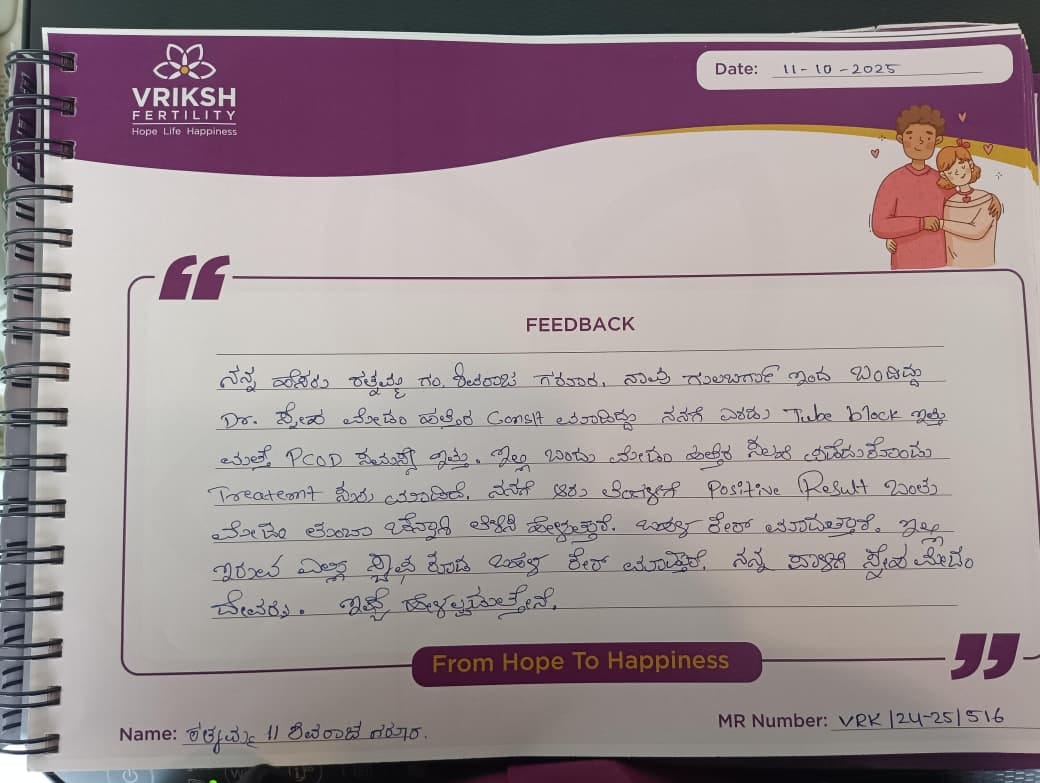 VRIKSH
FERTILITY
Hope Life Happiness
Date: 11-10-2025
FEEDBACK
ನನ್ನ ಹೆಸರು ರತ್ನಮ್ಮ ಗಂ. ಶಿವರಾಜ ಗರೂರ. ನಾವು ಗುಲಬರ್ಗಾ ಇಂದ ಬಂದಿದ್ದು
Dr. ಸ್ನೇಹ ಮೇಡಂ ಹತ್ತಿರ Conslt ಮಾಡಿದ್ದು ನನಗೆ ಎರಡು Tube block ಇತ್ತು
ಮತ್ತೆ PCOD ಸಮಸ್ಯೆ ಇತ್ತು. ಇಲ್ಲಿ ಬಂದು ಮೇಡಂ ಹತ್ತಿರ ಸಲಹೆ ಪಡೆದುಕೊಂಡು
Treatemnt ಸುರು ಮಾಡಿದೆ. ನನಗೆ ಆರು ತಿಂಗಳಿಗೆ Positive Result ಬಂತು
ಮೇಡಂ ತುಂಬಾ ಚೆನ್ನಾಗಿ ತಿಳಿಸಿ ಹೇಳುತ್ತಾರೆ. ಬಹಳ ಕೇರ್ ಮಾಡುತ್ತಾರೆ. ಇಲ್ಲಿ
ಇರುವ ಎಲ್ಲಾ ಸ್ಟಾಫ ಕೂಡ ಬಹಳ ಕೇರ್ ಮಾಡ್ತಾರೆ. ನನ್ನ ಪಾಲಿಗೆ ಸ್ನೇಹ ಮೇಡಂ
ದೇವರು. ಇಷ್ಟೆ ಹೇಳಲ್ಪಡುತ್ತೇನೆ.
From Hope To Happiness
Name: ರತ್ನಮ್ಮ || ಶಿವರಾಜ ಗರೂರ.
MR Number: VRK/24-25/516